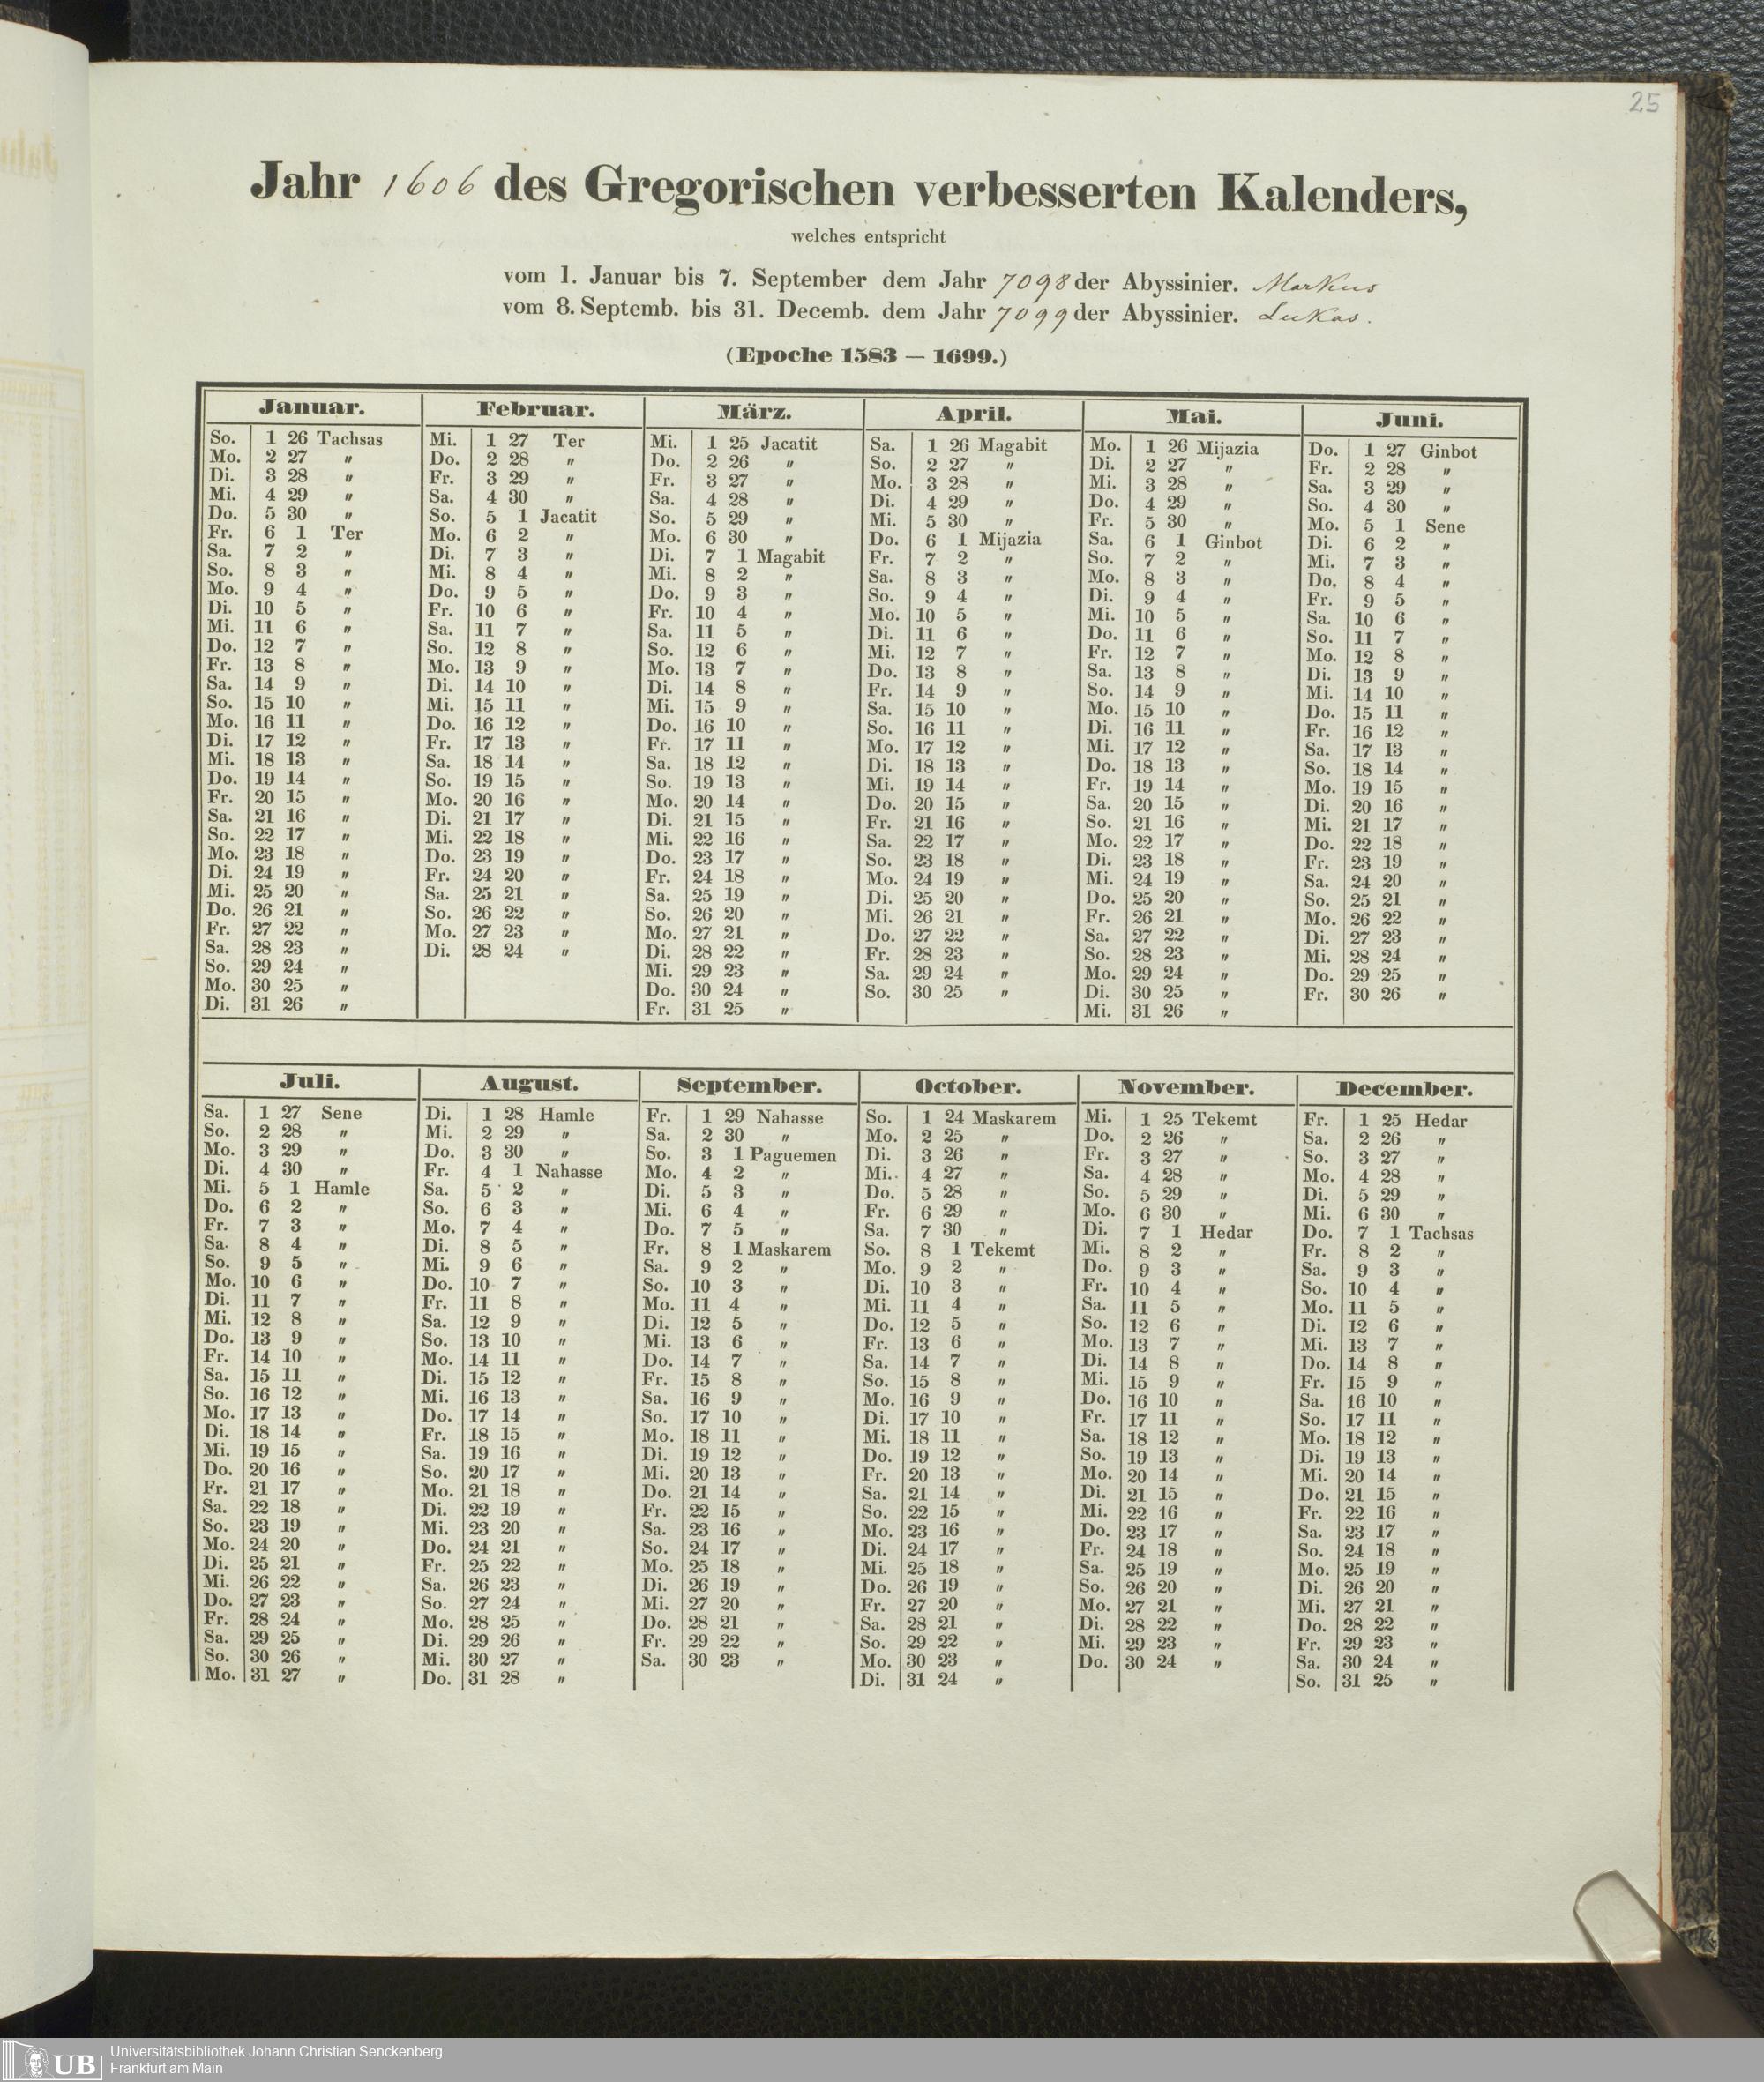 25
Jahr 1606 des Gregorischen verbesserten Kalenders,
welches entspricht
vom 1. Januar bis 7. September dem Jahr 7098 der Abyssinier. Markus
vom 8. Septemb. bis 31. Decemb. dem Jahr 7099 der Abyssinier. Lukas.
(Epoche 1583 — 1699.)
Januar.
So. 1 26 Tachsas
Mo. 2 27 "
Di. 3 28 "
Mi. 4 29 "
Do. 5 30 "
Fr. 6 1 Ter
Sa. 7 2 "
So. 8 3 "
Mo. 9 4 "
Di. 10 5 "
Mi. 11 6 "
Do. 12 7 "
Fr. 13 8 "
Sa. 14 9 "
So. 15 10 "
Mo. 16 11 "
Di. 17 12 "
Mi. 18 13 "
Do. 19 14 "
Fr. 20 15 "
Sa. 21 16 "
So. 22 17 "
Mo. 23 18 "
Di. 24 19 "
Mi. 25 20 "
Do. 26 21 "
Fr. 27 22 "
Sa. 28 23 "
So. 29 24 "
Mo. 30 25 "
Di. 31 26 "
Februar.
Mi. 1 27 Ter
Do. 2 28 "
Fr. 3 29 "
Sa. 4 30 "
So. 5 1 Jacatit
Mo. 6 2 "
Di. 7 3 "
Mi. 8 4 "
Do. 9 5 "
Fr. 10 6 "
Sa. 11 7 "
So. 12 8 "
Mo. 13 9 "
Di. 14 10 "
Mi. 15 11 "
Do. 16 12 "
Fr. 17 13 "
Sa. 18 14 "
So. 19 15 "
Mo. 20 16 "
Di. 21 17 "
Mi. 22 18 "
Do. 23 19 "
Fr. 24 20 "
Sa. 25 21 "
So. 26 22 "
Mo. 27 23 "
Di. 28 24 "
März.
Mi. 1 25 Jacatit
Do. 2 26 "
Fr. 3 27 "
Sa. 4 28 "
So. 5 29 "
Mo. 6 30 "
Di. 7 1 Magabit
Mi. 8 2 "
Do. 9 3 "
Fr. 10 4 "
Sa. 11 5 "
So. 12 6 "
Mo. 13 7 "
Di. 14 8 "
Mi. 15 9 "
Do. 16 10 "
Fr. 17 11 "
Sa. 18 12 "
So. 19 13 "
Mo. 20 14 "
Di. 21 15 "
Mi. 22 16 "
Do. 23 17 "
Fr. 24 18 "
Sa. 25 19 "
So. 26 20 "
Mo. 27 21 "
Di. 28 22 "
Mi. 29 23 "
Do. 30 24 "
Fr. 31 25 "
April.
Sa. 1 26 Magabit
So. 2 27 "
Mo. 3 28 "
Di. 4 29 "
Mi. 5 30 "
Do. 6 1 Mijazia
Fr. 7 2 "
Sa. 8 3 "
So. 9 4 "
Mo. 10 5 "
Di. 11 6 "
Mi. 12 7 "
Do. 13 8 "
Fr. 14 9 "
Sa. 15 10 "
So. 16 11 "
Mo. 17 12 "
Di. 18 13 "
Mi. 19 14 "
Do. 20 15 "
Fr. 21 16 "
Sa. 22 17 "
So. 23 18 "
Mo. 24 19 "
Di. 25 20 "
Mi. 26 21 "
Do. 27 22 "
Fr. 28 23 "
Sa. 29 24 "
So. 30 25 "
Mai.
Mo. 1 26 Mijazia
Di. 2 27 "
Mi. 3 28 "
Do. 4 29 "
Fr. 5 30 "
Sa. 6 1 Ginbot
So. 7 2 "
Mo. 8 3 "
Di. 9 4 "
Mi. 10 5 "
Do. 11 6 "
Fr. 12 7 "
Sa. 13 8 "
So. 14 9 "
Mo. 15 10 "
Di. 16 11 "
Mi. 17 12 "
Do. 18 13 "
Fr. 19 14 "
Sa. 20 15 "
So. 21 16 "
Mo. 22 17 "
Di. 23 18 "
Mi. 24 19 "
Do. 25 20 "
Fr. 26 21 "
Sa. 27 22 "
So. 28 23 "
Mo. 29 24 "
Di. 30 25 "
Mi. 31 26 "
Juni.
Do. 1 27 Ginbot
Fr. 2 28 "
Sa. 3 29 "
So. 4 30 "
Mo. 5 1 Sene
Di. 6 2 "
Mi. 7 3 "
Do. 8 4 "
Fr. 9 5 "
Sa. 10 6 "
So. 11 7 "
Mo. 12 8 "
Di. 13 9 "
Mi. 14 10 "
Do. 15 11 "
Fr. 16 12 "
Sa. 17 13 "
So. 18 14 "
Mo. 19 15 "
Di. 20 16 "
Mi. 21 17 "
Do. 22 18 "
Fr. 23 19 "
Sa. 24 20 "
So. 25 21 "
Mo. 26 22 "
Di. 27 23 "
Mi. 28 24 "
Do. 29 25 "
Fr. 30 26 "
Juli.
Sa. 1 27 Sene
So. 2 28 "
Mo. 3 29 "
Di. 4 30 "
Mi. 5 1 Hamle
Do. 6 2 "
Fr. 7 3 "
Sa. 8 4 "
So. 9 5 "
Mo. 10 6 "
Di. 11 7 "
Mi. 12 8 "
Do. 13 9 "
Fr. 14 10 "
Sa. 15 11 "
So. 16 12 "
Mo. 17 13 "
Di. 18 14 "
Mi. 19 15 "
Do. 20 16 "
Fr. 21 17 "
Sa. 22 18 "
So. 23 19 "
Mo. 24 20 "
Di. 25 21 "
Mi. 26 22 "
Do. 27 23 "
Fr. 28 24 "
Sa. 29 25 "
So. 30 26 "
Mo. 31 27 "
August.
Di. 1 28 Hamle
Mi. 2 29 "
Do. 3 30 "
Fr. 4 1 Nahasse
Sa. 5 2 "
So. 6 3 "
Mo. 7 4 "
Di. 8 5 "
Mi. 9 6 "
Do. 10 7 "
Fr. 11 8 "
Sa. 12 9 "
So. 13 10 "
Mo. 14 11 "
Di. 15 12 "
Mi. 16 13 "
Do. 17 14 "
Fr. 18 15 "
Sa. 19 16 "
So. 20 17 "
Mo. 21 18 "
Di. 22 19 "
Mi. 23 20 "
Do. 24 21 "
Fr. 25 22 "
Sa. 26 23 "
So. 27 24 "
Mo. 28 25 "
Di. 29 26 "
Mi. 30 27 "
Do. 31 28 "
September.
Fr. 1 29 Nahasse
Sa. 2 30 "
So. 3 1 Paguemen
Mo. 4 2 "
Di. 5 3 "
Mi. 6 4 "
Do. 7 5 "
Fr. 8 1 Maskarem
Sa. 9 2 "
So. 10 3 "
Mo. 11 4 "
Di. 12 5 "
Mi. 13 6 "
Do. 14 7 "
Fr. 15 8 "
Sa. 16 9 "
So. 17 10 "
Mo. 18 11 "
Di. 19 12 "
Mi. 20 13 "
Do. 21 14 "
Fr. 22 15 "
Sa. 23 16 "
So. 24 17 "
Mo. 25 18 "
Di. 26 19 "
Mi. 27 20 "
Do. 28 21 "
Fr. 29 22 "
Sa. 30 23 "
October.
So. 1 24 Maskarem
Mo. 2 25 "
Di. 3 26 "
Mi. 4 27 "
Do. 5 28 "
Fr. 6 29 "
Sa. 7 30 "
So. 8 1 Tekemt
Mo. 9 2 "
Di. 10 3 "
Mi. 11 4 "
Do. 12 5 "
Fr. 13 6 "
Sa. 14 7 "
So. 15 8 "
Mo. 16 9 "
Di. 17 10 "
Mi. 18 11 "
Do. 19 12 "
Fr. 20 13 "
Sa. 21 14 "
So. 22 15 "
Mo. 23 16 "
Di. 24 17 "
Mi. 25 18 "
Do. 26 19 "
Fr. 27 20 "
Sa. 28 21 "
So. 29 22 "
Mo. 30 23 "
Di. 31 24 "
November.
Mi. 1 25 Tekemt
Do. 2 26 "
Fr. 3 27 "
Sa. 4 28 "
So. 5 29 "
Mo. 6 30 "
Di. 7 1 Hedar
Mi. 8 2 "
Do. 9 3 "
Fr. 10 4 "
Sa. 11 5 "
So. 12 6 "
Mo. 13 7 "
Di. 14 8 "
Mi. 15 9 "
Do. 16 10 "
Fr. 17 11 "
Sa. 18 12 "
So. 19 13 "
Mo. 20 14 "
Di. 21 15 "
Mi. 22 16 "
Do. 23 17 "
Fr. 24 18 "
Sa. 25 19 "
So. 26 20 "
Mo. 27 21 "
Di. 28 22 "
Mi. 29 23 "
Do. 30 24 "
December.
Fr. 1 25 Hedar
Sa. 2 26 "
So. 3 27 "
Mo. 4 28 "
Di. 5 29 "
Mi. 6 30 "
Do. 7 1 Tachsas
Fr. 8 2 "
Sa. 9 3 "
So. 10 4 "
Mo. 11 5 "
Di. 12 6 "
Mi. 13 7 "
Do. 14 8 "
Fr. 15 9 "
Sa. 16 10 "
So. 17 11 "
Mo. 18 12 "
Di. 19 13 "
Mi. 20 14 "
Do. 21 15 "
Fr. 22 16 "
Sa. 23 17 "
So. 24 18 "
Mo. 25 19 "
Di. 26 20 "
Mi. 27 21 "
Do. 28 22 "
Fr. 29 23 "
Sa. 30 24 "
So. 31 25 "
UB
Universitätsbibliothek Johann Christian Senckenberg
Frankfurt am Main